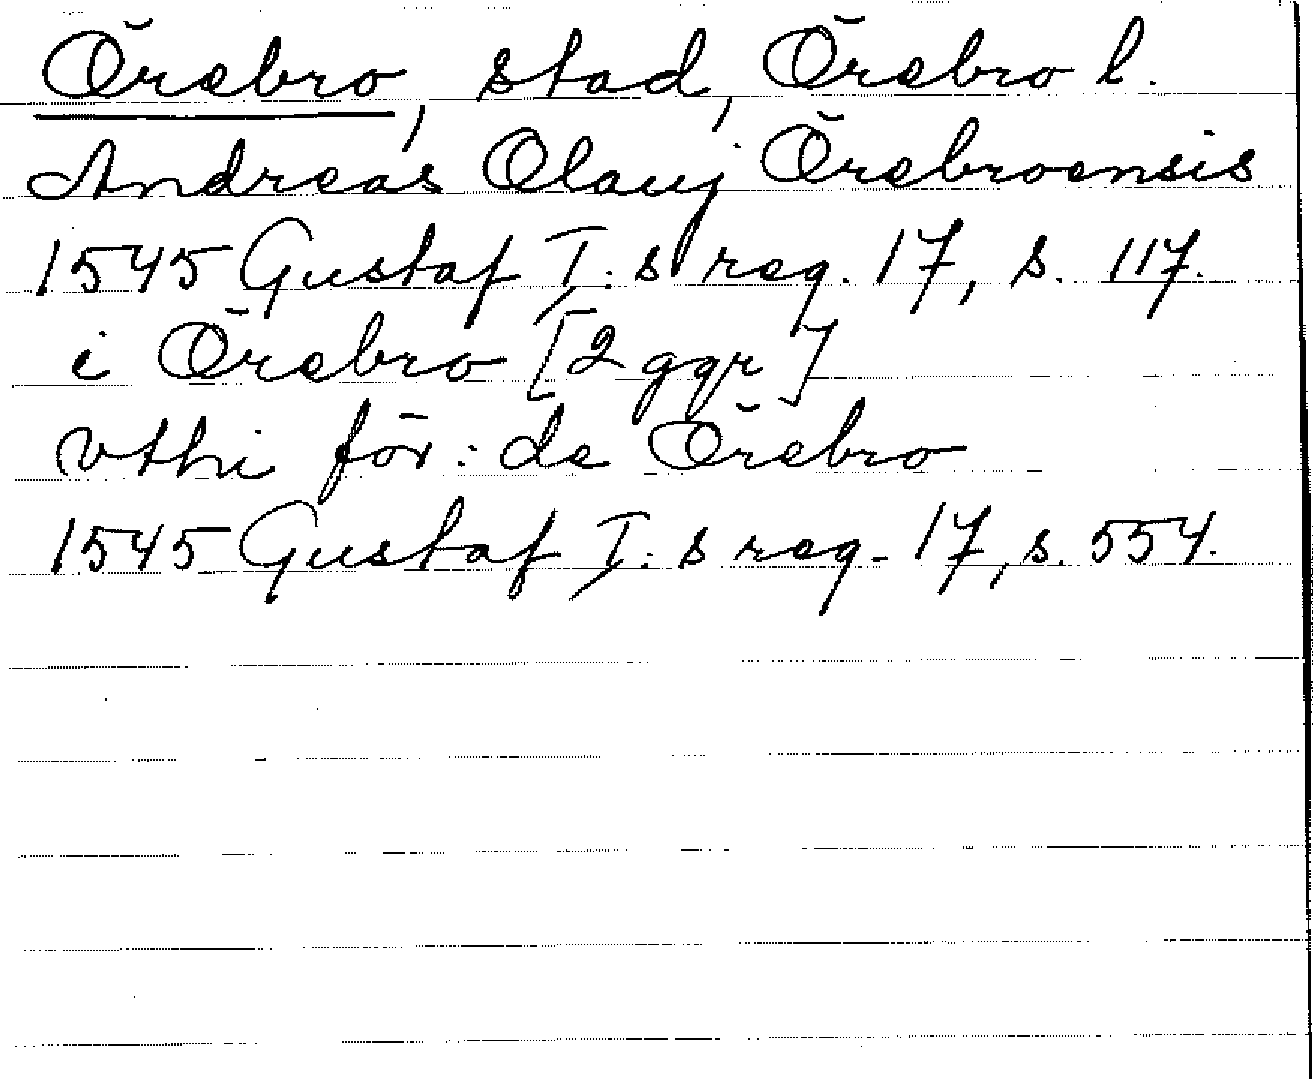 Örebro, stad, Örebro l.
Andreas Olauj Örebroensis
1545 Gustaf I:s reg. 17, s. 117.
i Örebro [2 ggr]
vthi för: de Örebro
1545 Gustaf I:s reg. 17, s. 554.